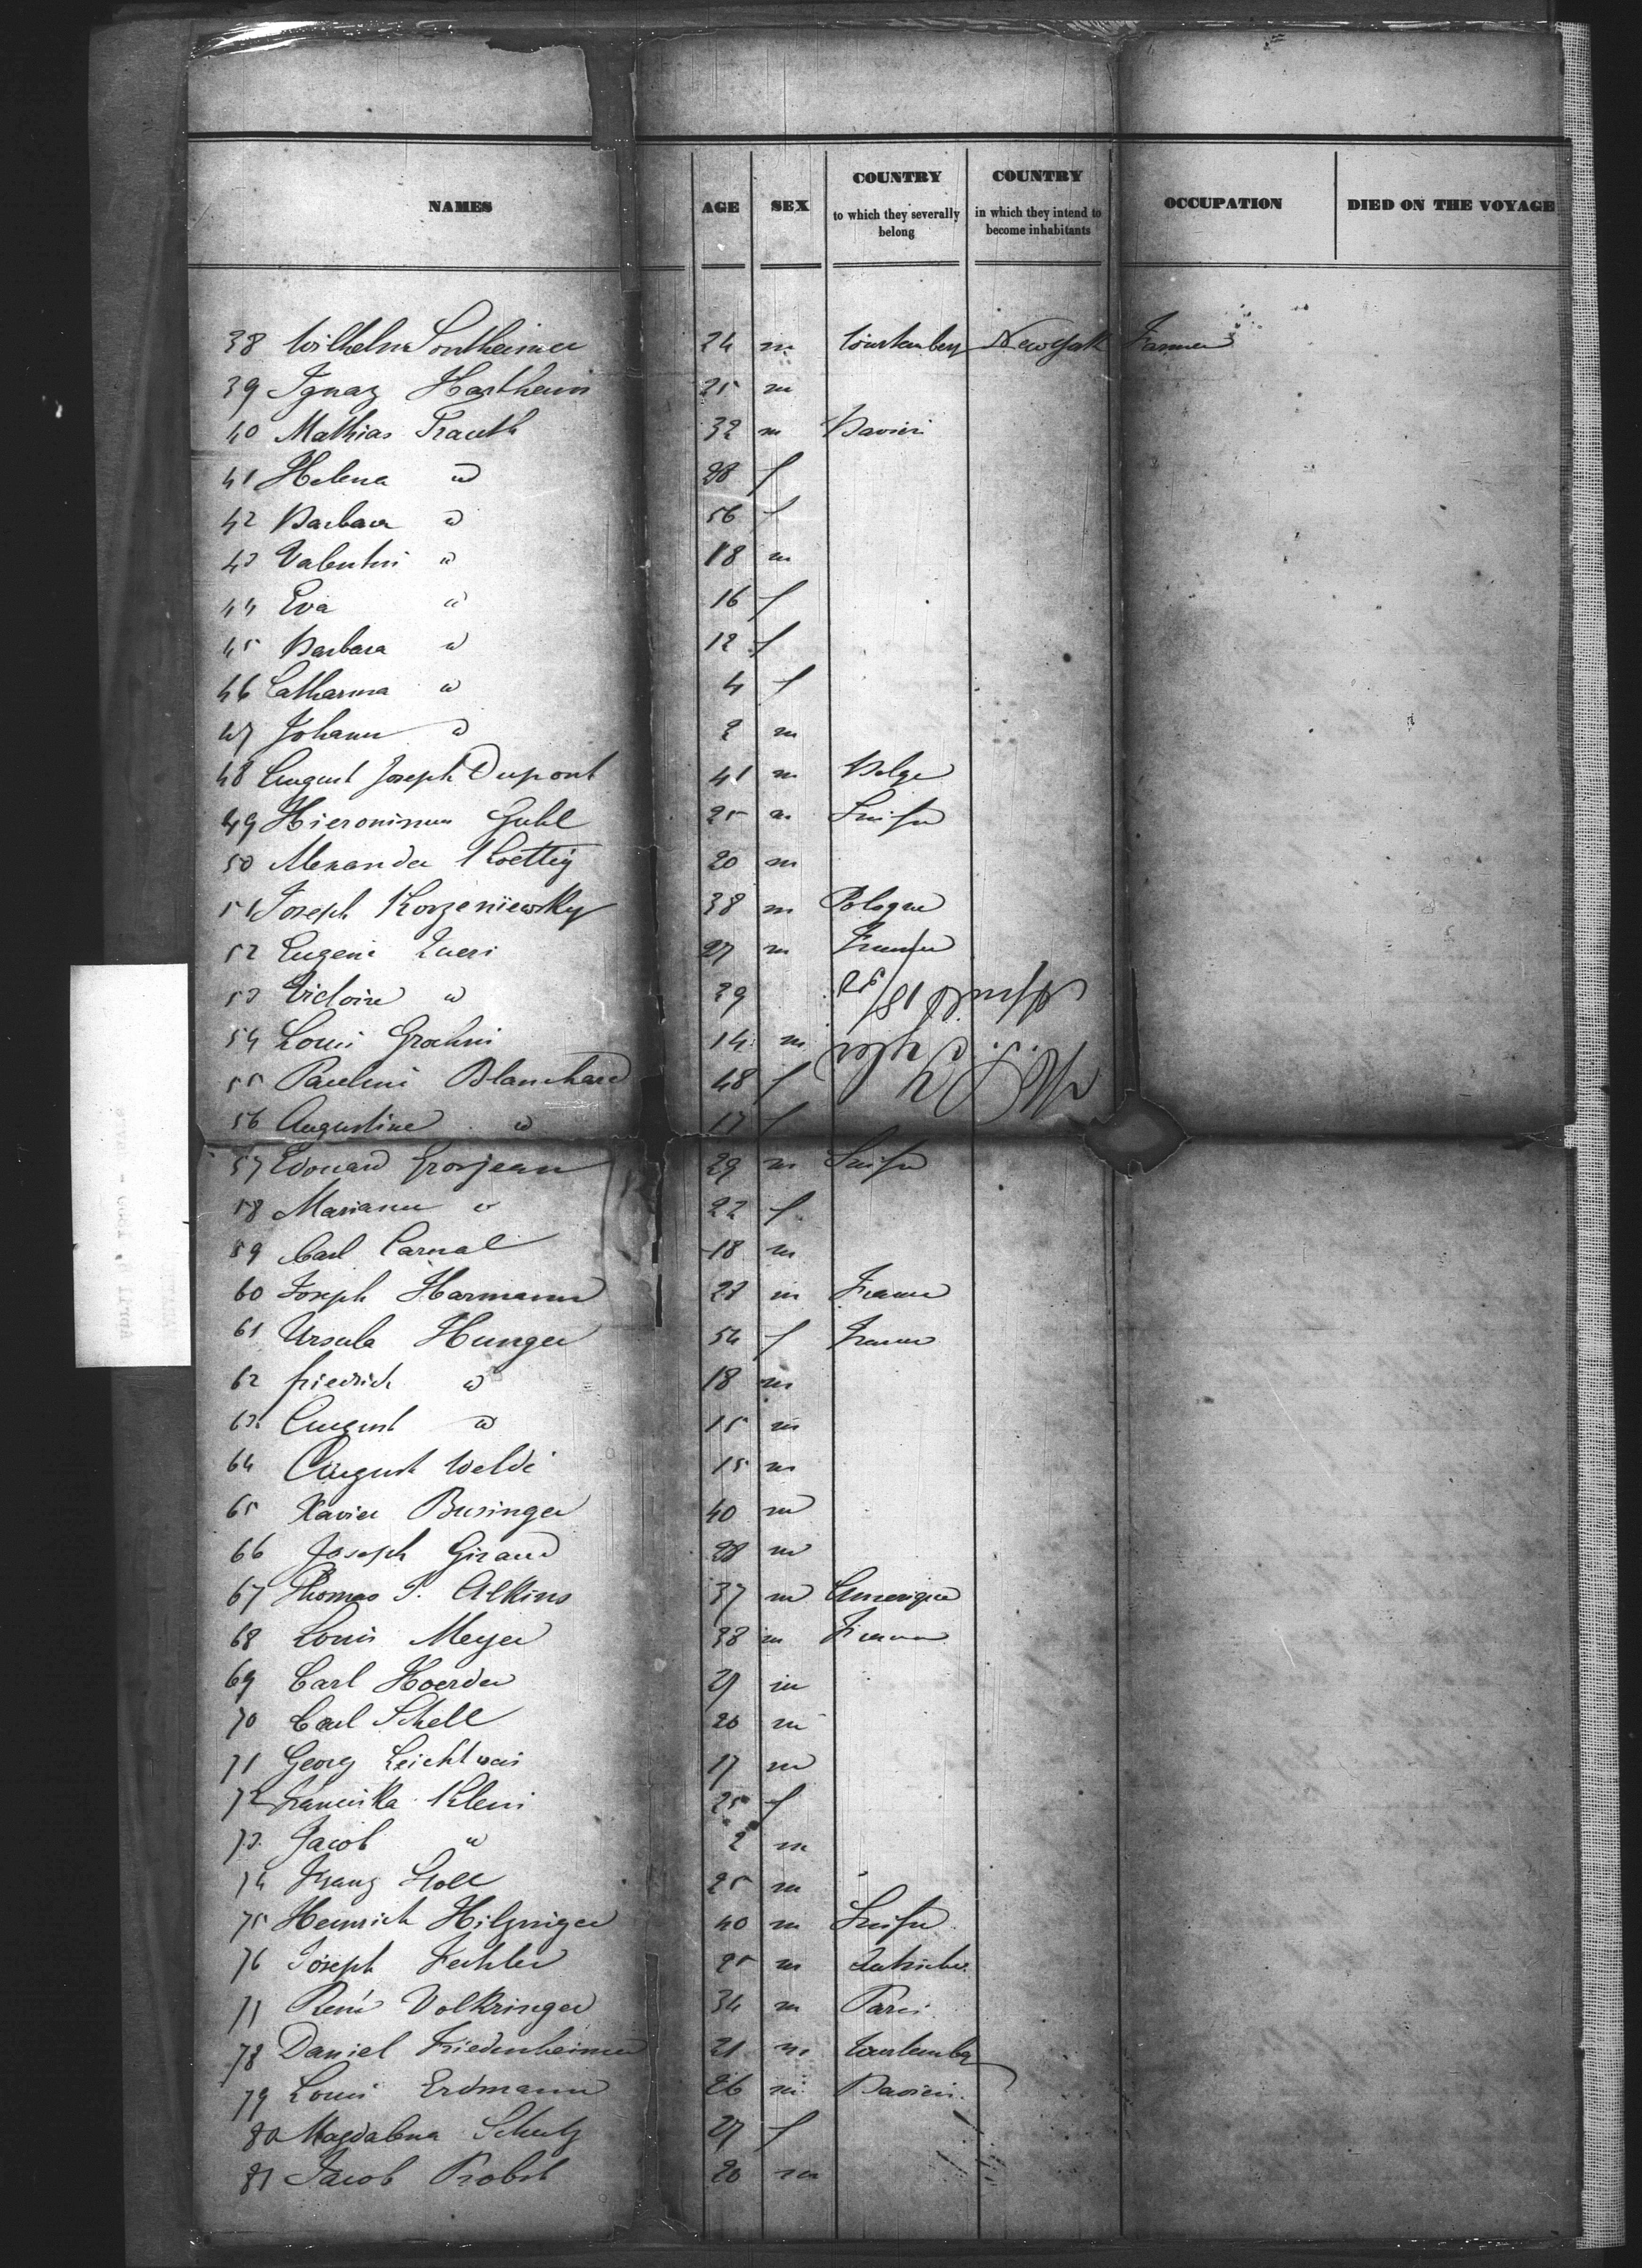 NAMES AGE SEX COUNTRY to which they severally belong COUNTRY in which they intend to become inhabitants OCCUPATION DIED ON THE VOYAGE
38 Wilhelm Sontheimer 24 m Wurtemberg New York Farmer
39 Ignaz Hartheim 25 m
40 Mathias Trauth 32 m Bavieri
41 Helena " 28 f
42 Barbara " 56 f
43 Valentin " 18 m
44 Eva " 16 f
45 Barbara " 12 f
46 Catharina " 4 f
47 Johann " 2 m
48 August Joseph Dupont 41 m Belge
49 Hieronimus Guhl 25 m Suisse
50 Alexander Koettig 20 m
51 Joseph Korzeniewsky 38 m Pologne
52 Eugeni 27 m France
53 Victoire " 39
54 Louis 14 m
55 Paulini Blanchard 48 f
56 Augustine " 17 f
57 Edouard Grosjean 29 m Suisse
58 Mariann " 22 f
59 Carl Carnal 18 m
60 Joseph Harmann 28 m France
61 Ursula Hunger 54 f France
62 friedrich " 18 m
63 August " 15 m
64 August Weldi 15 m
65 Xavier Businger 40 m
66 Joseph Giraud 28 m
67 Thomas S. Alkins 37 m Amerique
68 Louis Meyer 38 m France
69 Carl Hoerder 27 m
70 Carl Schell 20 m
71 Georg Leichtweis 17 m
72 Klein 25 f
73 Jacob " 2 m
74 Franz Stoll 25 m
75 Heinrich Hilzinger 40 m Suisse
76 Joseph Fechler 25 m
77 René Volkringer 34 m Paris
78 Daniel Friedenheimer 21 m Wurtemberg
79 Louis Erdmann 26 m Bavieri
80 Magdalena Schulz 27 f
81 Jacob Probst 20 m